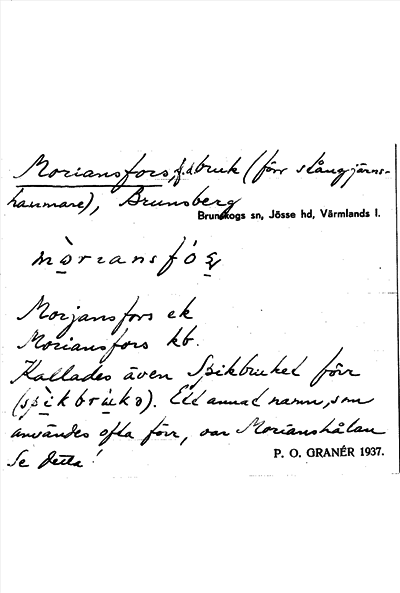 Moriansfors, f.d. bruk (förr stångjärns-
hammare), Brunsberg
Brunskogs sn, Jösse hd, Värmlands l.
mò̱riansfó
Morjansfors ek
Moriansfors kb.
Kallades även Spikbruket förr
(spìkbrùkə). Ett annat namn, som
användes ofta förr, var Morianshålan
Se detta!
P. O. GRANÉR 1937.